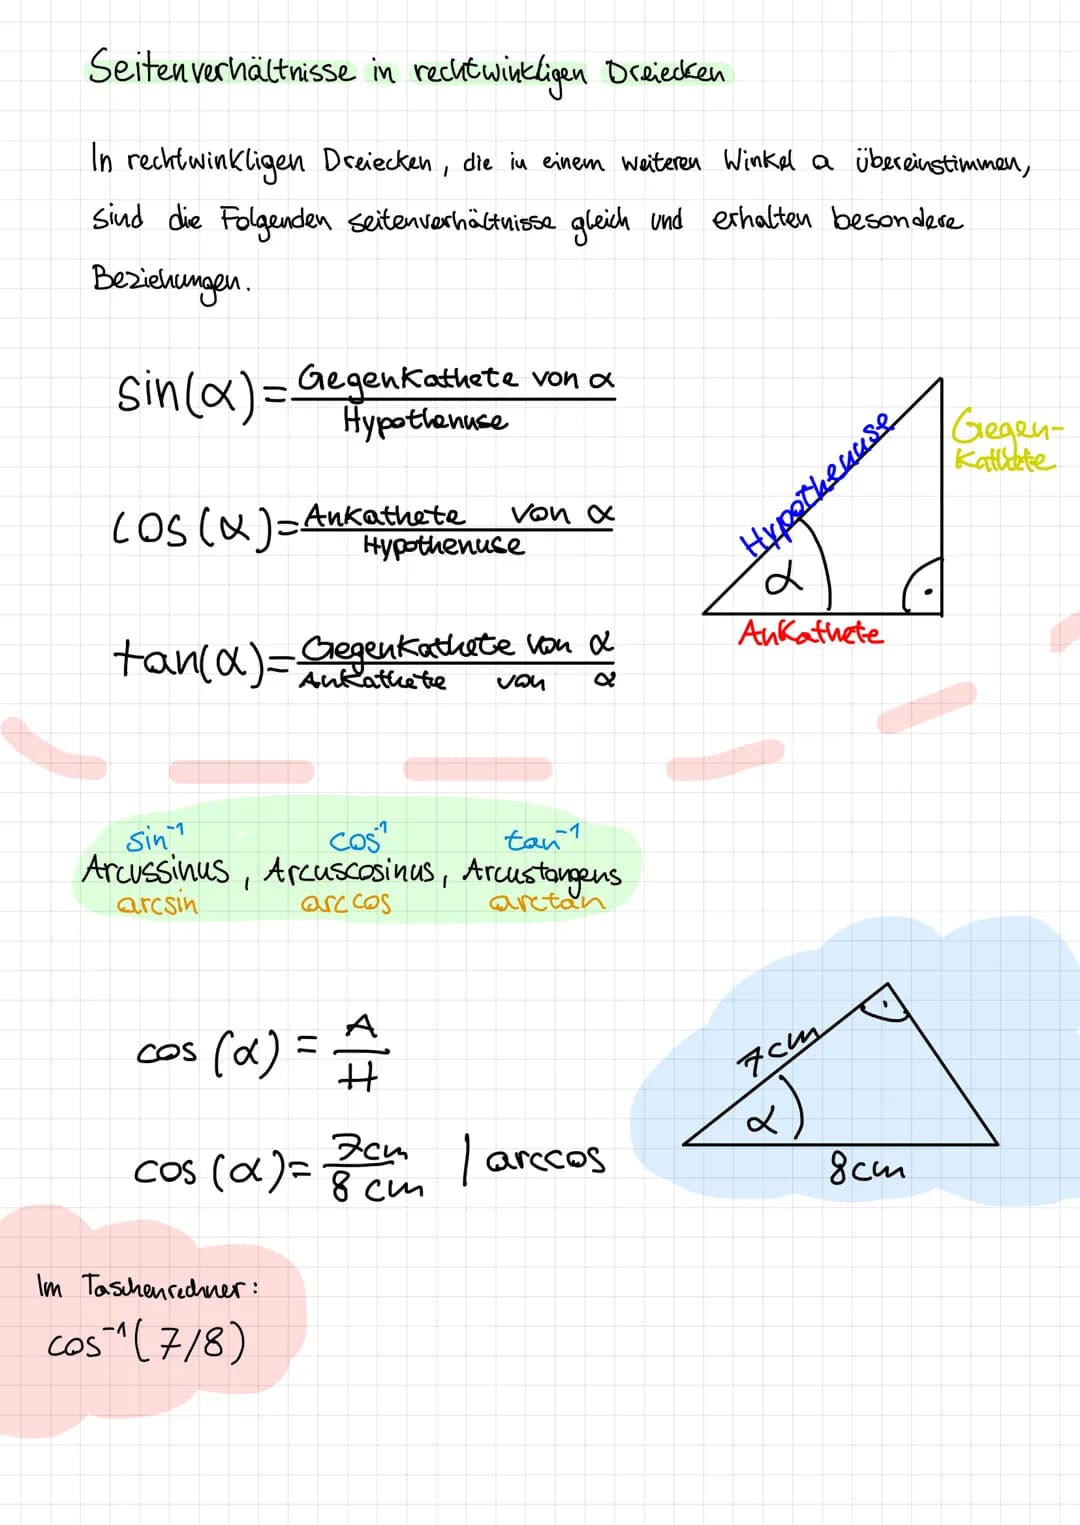 Seitenverhältnisse in rechtwinkligen Dreiecken
In rechtwinkligen Dreiecken, die in einem weiteren Winkel a übereinstimmen,
sind die Folgenden seitenverhältnisse gleich und erhalten besondere
Beziehungen.
sin(α)= Gegenkathete von α
Hypothenuse
cos(α)= Ankathete von α
Hypothenuse
tan(α)= Gegenkathete von α
Ankathete von α
Hypothenuse
Gegen-
Kathete
α
Ankathete
sin⁻¹ cos⁻¹ tan⁻¹
Arcussinus, Arcuscosinus, Arcustangens
arcsin arccos arctan
cos (α) = A
H
cos (α)= 7cm | arccos
8 cm
7cm
α
8cm
Im Taschenrechner:
cos⁻¹(7/8)